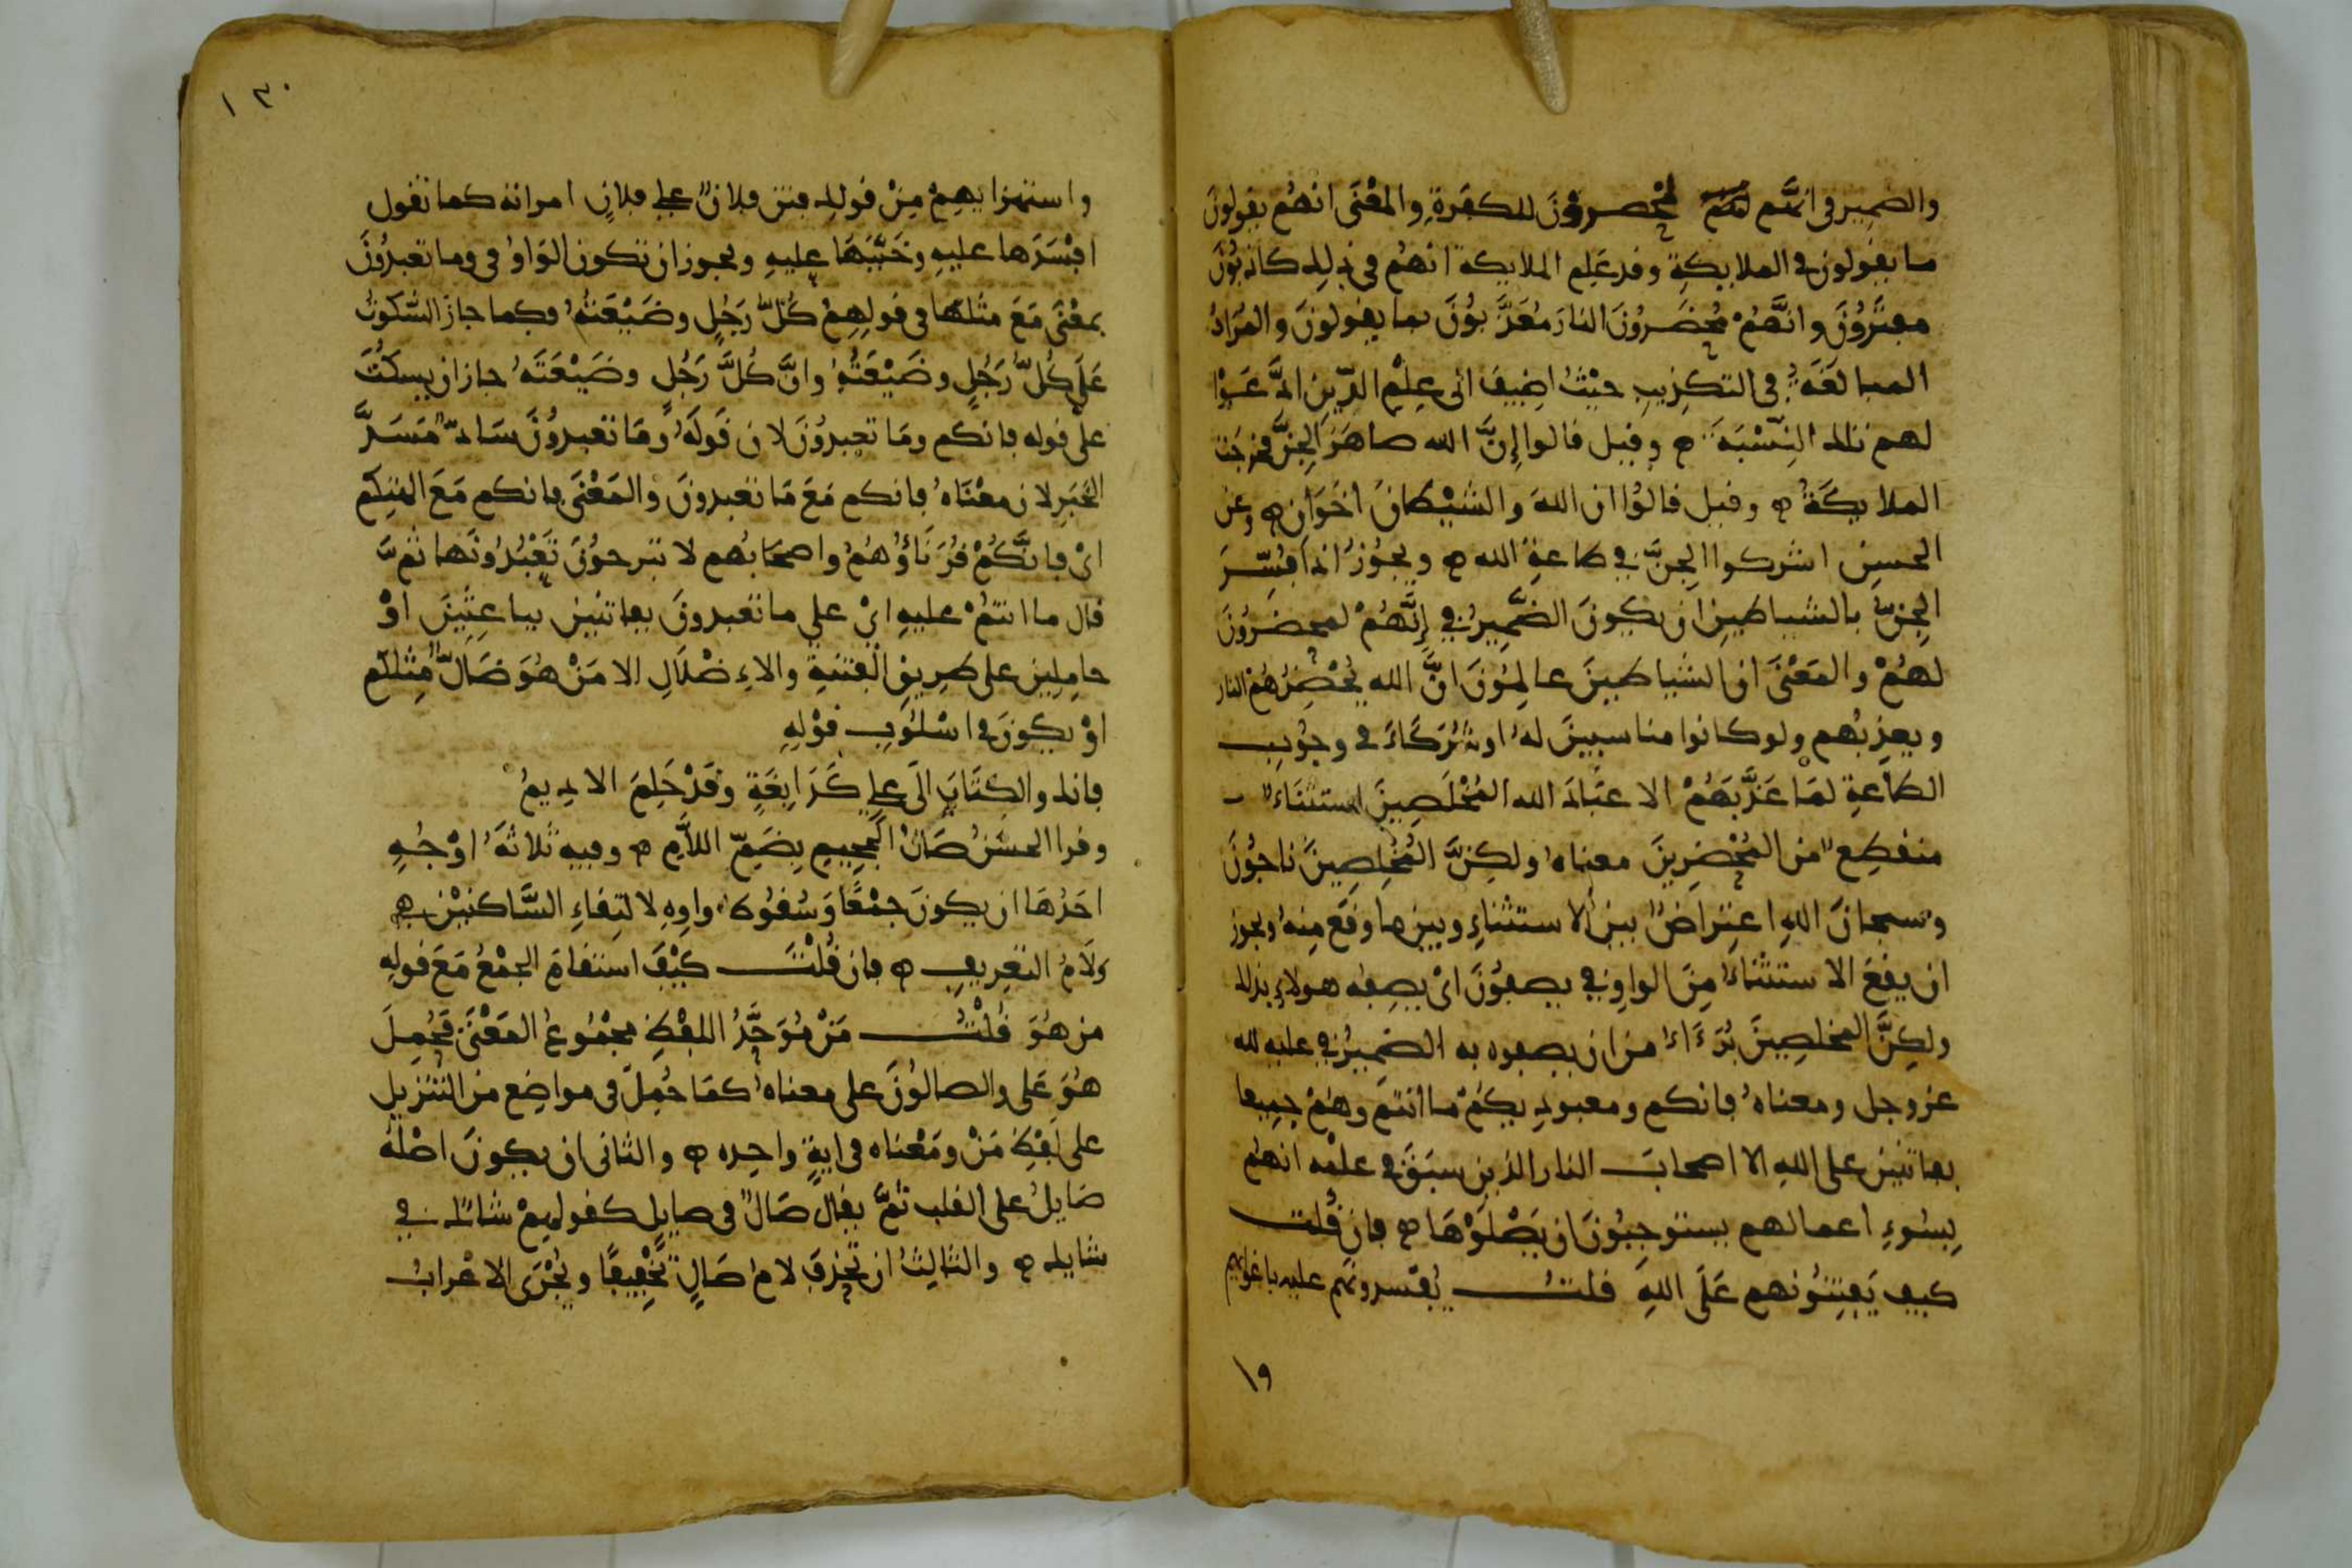 والضمير في انهم لمحضرون للكفرة والمعنى انهم يقولون
ما يقولون في الملايكة وقد علم الملايكة انهم في ذلك كاذبون
مفترون وانهم محضرون النار معذبون بما يقولون والمراد
المبالغة في التكذيب حيث اضيف الى علم الذين ادعوا
لهم تلك النسبة ه وقيل قالوا إن الله صاهر الجن فخرجت
الملايكة ه وقيل قالوا ان الله والشيطان اخوان ه وعن
الحسن اشركوا الجن في طاعة الله ه ويجوز اذا فسر
الجن بالشياطين ان يكون الضمير في إنهم لمحضرون
لهم والمعنى ان الشياطين عالمون ان الله يحضرهم النار
ويعذبهم ولو كانوا مناسبين له او شركاء في وجوب
الطاعة لما عذبهم الا عباد الله المخلصين استثناء
منقطع من المحضرين معناه ولكن المخلصين ناجون
وسبحان الله اعتراض بين الاستثناء وبين ما وقع منه ويجوز
ان يقع الاستثناء من الواو في يصفون اى يصفه هولاء بذلك
ولكن المخلصين برءاء من ان يصفوه به الضمير في عليه لله
عز وجل ومعناه فانكم ومعبوديكم ما انتم وهم جميعا
بفاتنين على الله الا اصحاب النار الذين سبق في علمه انهم
بسوء اعمالهم يستوجبون ان يصلوها ه فان قلت
كيف يفتنونهم على الله قلت يفسدونهم عليه باغوائهم
١٩
١٣٠
واستهزايهم من قولك فتن فلان على فلان امراته كما تقول
افسدها عليه وخببها عليه ويجوز ان تكون الواو في وما تعبدون
بمعنى مع مثلها في قولهم كل رجل وضيعته فكما جاز السكوت
على كل رجل وضيعته وان كل رجل وضيعته جاز ان يسكت
على قوله فانكم وما تعبدون لان قوله وما تعبدون ساد مسد
الخبر لان معناه فانكم مع ما تعبدون والمعنى فانكم مع الهتكم
اى فانكم قرناؤهم واصحابهم لا تبرحون تعبدونها ثم
قال ما انتم عليه اى على ما تعبدون بفاتنين بباعثين او
حاملين على طريق الفتنة والاضلال الا من هو ضال مثلكم
او يكون في اسلوب قوله
فانك والكتاب الى على كدابغة وقد حلم الاديم
وقرا الحسن صال الجحيم بضم اللام ه وفيه ثلاثة اوجه
احدها ان يكون جمعا وسقوط واوه لالتقاء الساكنين هي
ولام التعريف ه فان قلت كيف استقام الجمع مع قوله
من هو قلت من موحد اللفظ مجموع المعنى فحمل
هو على والصالون على معناه كما حمل في مواضع من التنزيل
على لفظ من ومعناه في اية واحده ه والثاني ان يكون اصله
صايل على القلب ثم يقال صال في صايل كقولهم شاك في
شايك ه والثالث ان تحذف لام صال تخفيفا ويجرى الاعراب